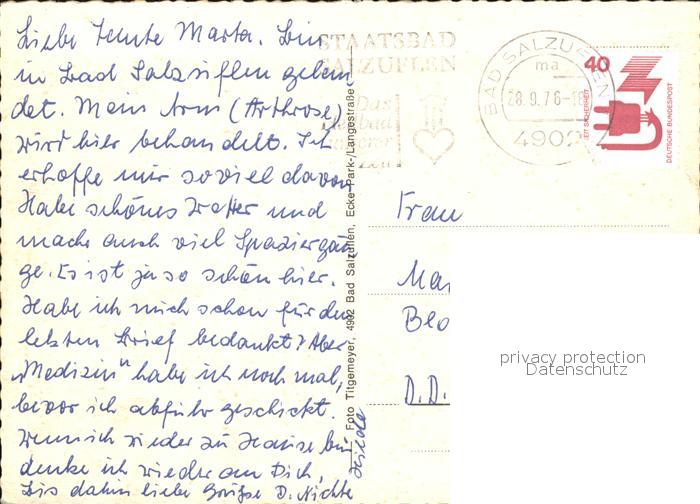 Liebe Tante Marta. Bin
in Bad Salzuflen gelan
det. Mein Arm (Arthrose)
wird hier behandelt. Ich
erhoffe mir soviel davon
Habe schönes Wetter und
mache auch viel Spaziergän
ge. Es ist ja so schön hier.
Habe ich mich schon für den
letzten Brief bedankt? Aber
"Medizin" habe ich noch mal,
bevor ich abfuhr geschickt.
Wenn ich wieder zu Hause bin
denke ich wieder an Dich,
Bis dahin liebe Grüße D. Nichte
Hilda
Foto Titgemeyer, 4902 Bad Salzuflen, Ecke Park-/Langestraße
STAATSBAD
SALZUFLEN
Das
Heilbad
unserer
Zeit
BAD SALZUFLEN
ma
28.9.76-18
4902
40
DEUTSCHE BUNDESPOST
Frau
Mar
Beo
D.D.
privacy protection
Datenschutz